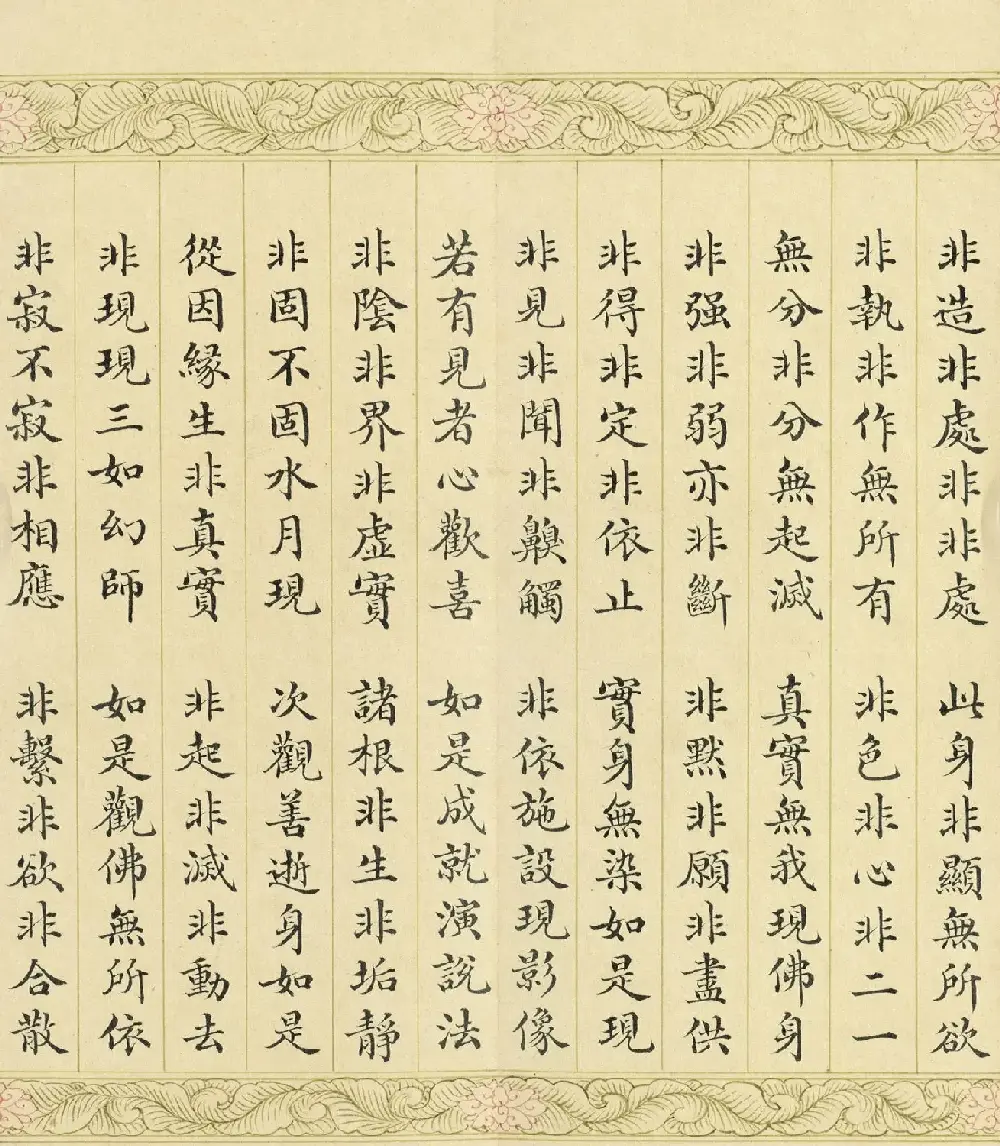 非造非處非非處　此身非顯無所欲
非執非作無所有　非色非心非二一
無分非分無起滅　真實無我現佛身
非强非弱亦非斷　非黙非願非盡供
非得非定非依止　實身無染如是現
非見非聞非齅觸　非依施設現影像
若有見者心歡喜　如是成就演說法
非陰非界非虛實　諸根非生非垢靜
非固不固水月現　次觀善逝身如是
從因緣生非真實　非起非滅非動去
非現現三如幻師　如是觀佛無所依
非寂不寂非相應　非繫非欲非合散